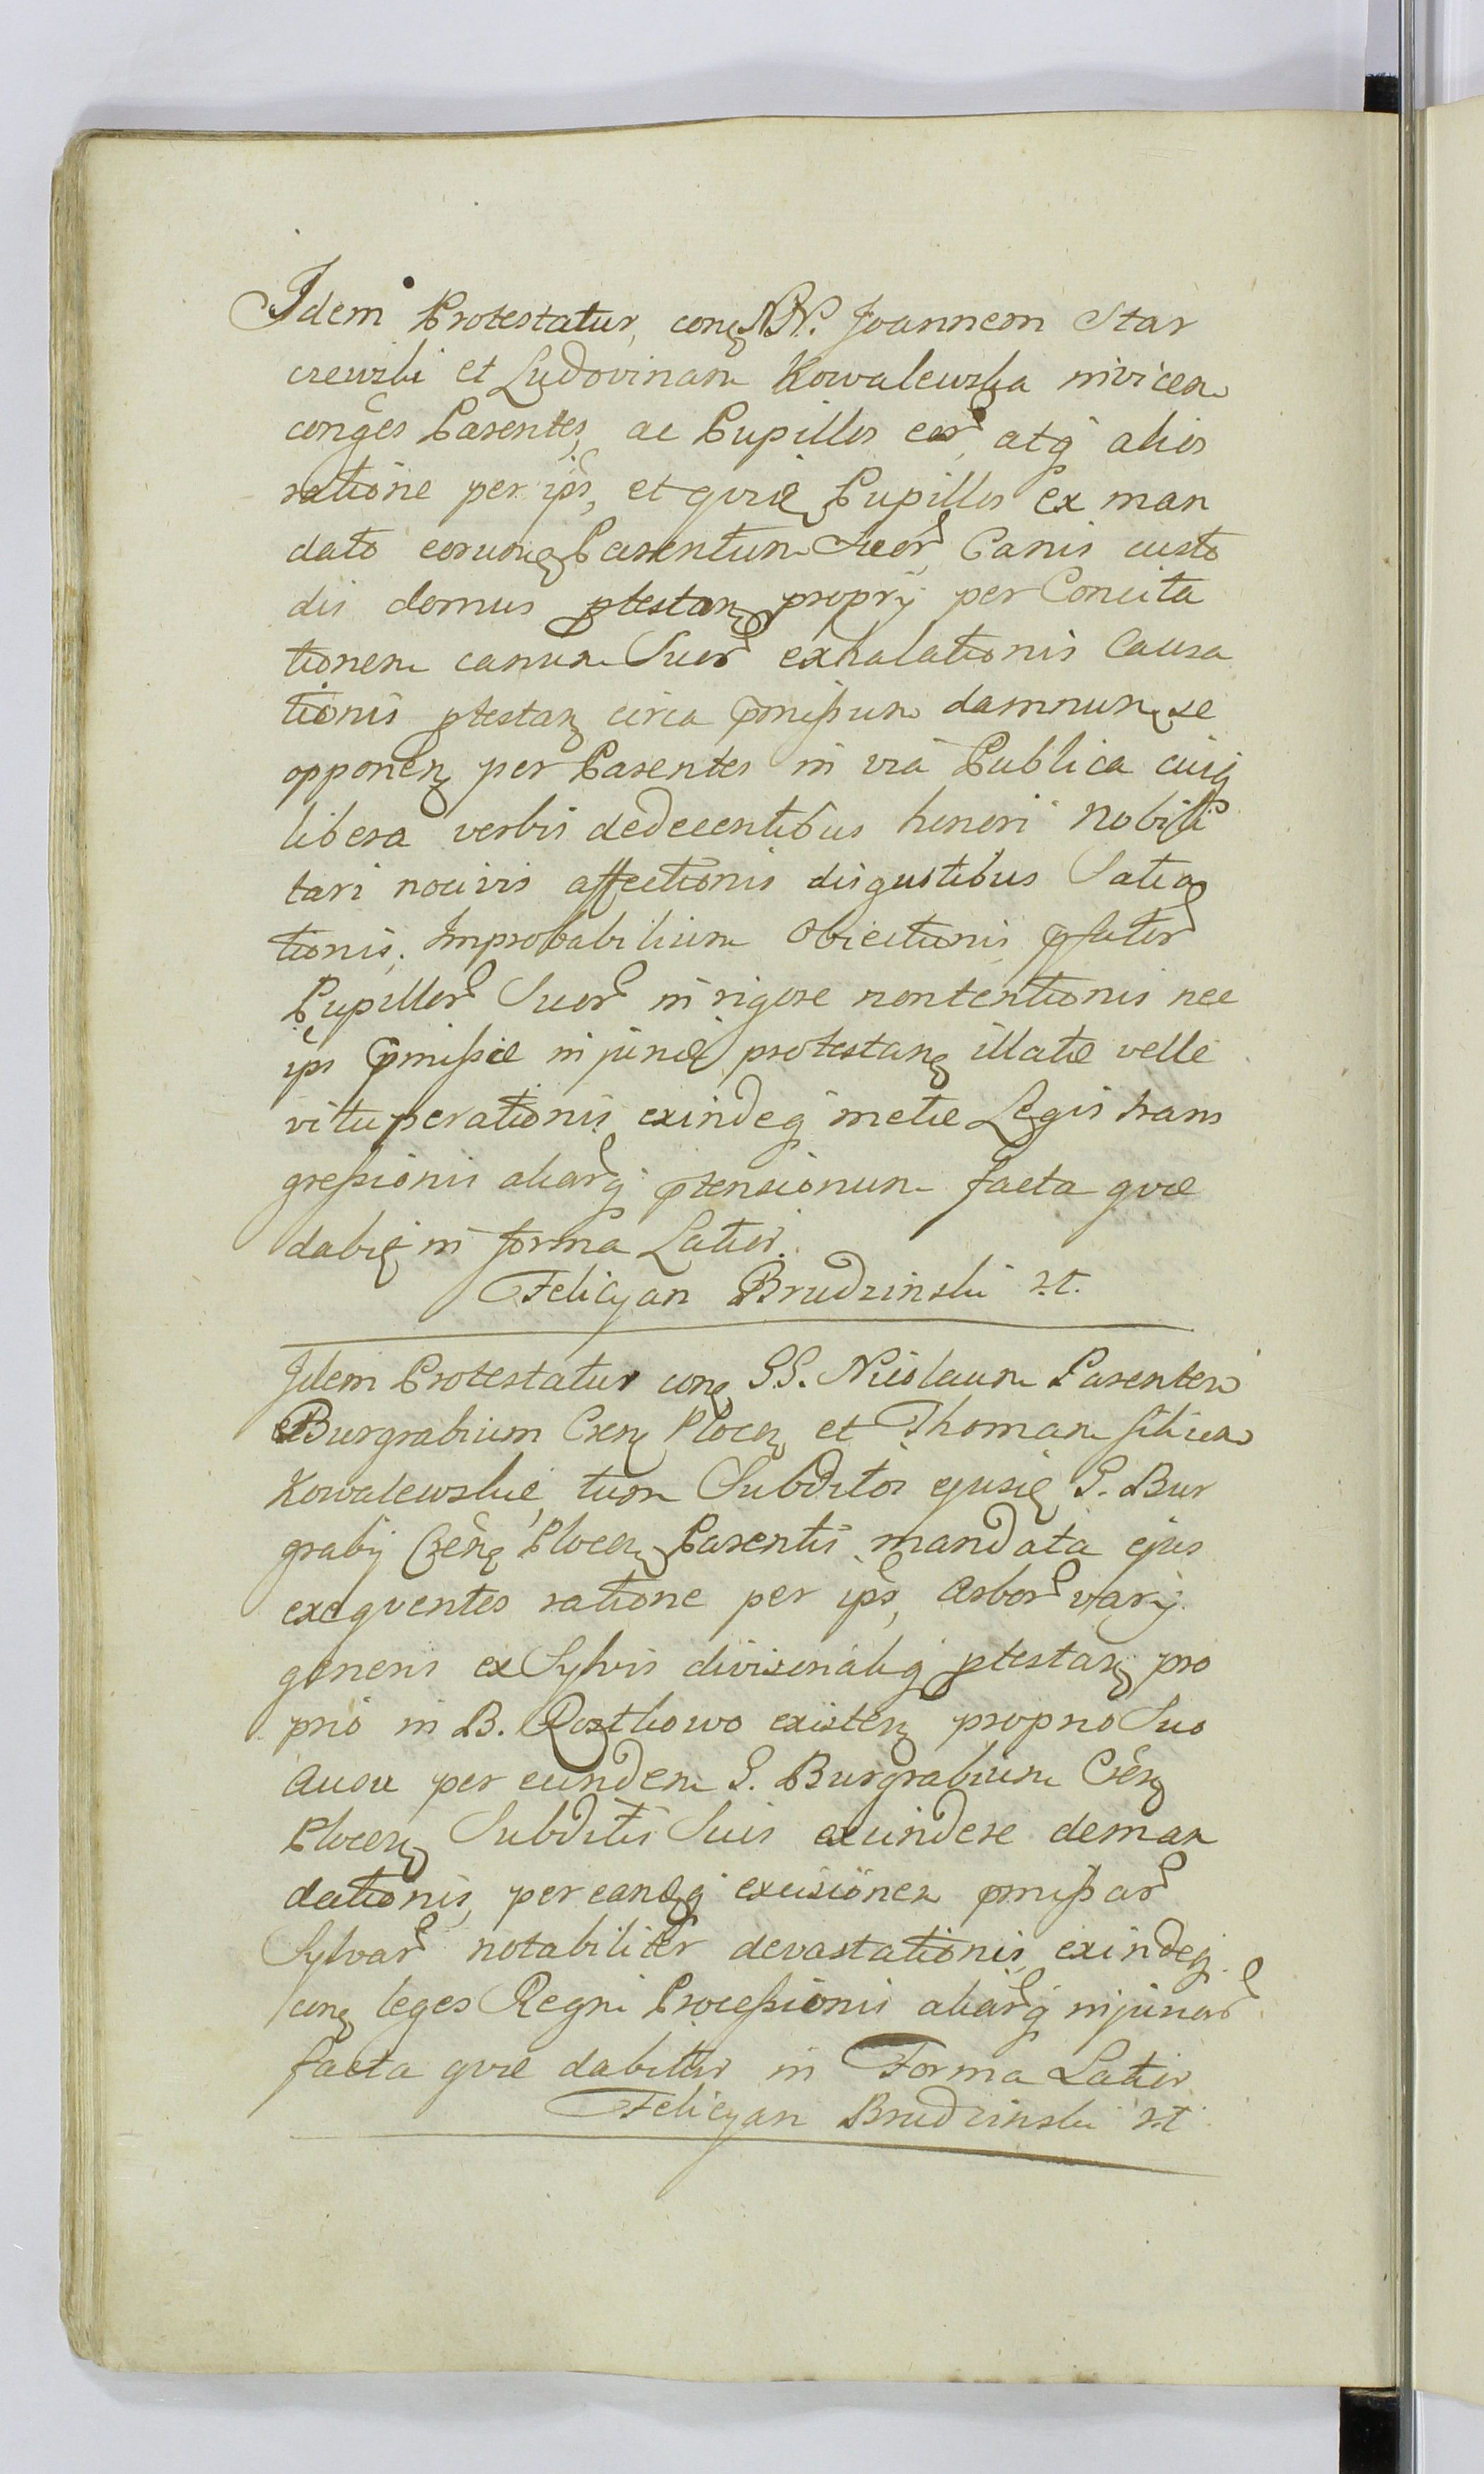 Idem Protestatur, conq NN. Joannem Star
czewski et Ludovinam Kowalewska invicem
conges Parentes, ac Pupillos eor, atq alios
ratione per ips, et qvidē Pupillos ex man
dato eorumq Parentum Suor, Canis custo
dis domus ptestan proprij per Concita
tionem canum Suor exhalationis Causa
tionis ptestan circa pmissum damnum se
opponen per Parentes in via Publica cuiq
libera verbis dedecentibus honori Nobili
tari nocivis affectionis disgustibus Satia
tionis, Improbabilium Obiectionis pfator
Pupillor Suor in rigore nontentionis nec
ips pmissæ injuriæ protestanq illatæ velle
vituperationis exindeq metæ Legis trans
gressionis aliarq ptensionum facta qvæ
dabit in forma Latior.
Felicyan Brudzinski r.t.
Idem Protestatur conq GG. Nicolaum Parentem
Burgrabium Cren Plocen et Thomam filium
Kowalewskie, tum Subditos ejusd G. Bur
grabij Cren Plocen Parentis mandata ejus
exeqventes ratione per ips, Arbor varij
generis ex Sylvis divisionaliq ptestan pro
prio in B. Rostkowo existen proprio Suo
Ausu per eundem G. Burgrabium Cren
Plocen Subditis Suis excindere deman
dationis, per eamq excisionem pmissar
Sylvar notabiliter devastationis, exindeq
conq leges Regni Processionis aliarq injuriar
facta qvæ dabitur in Forma Latior
Felicyan Brudzinski r.t.